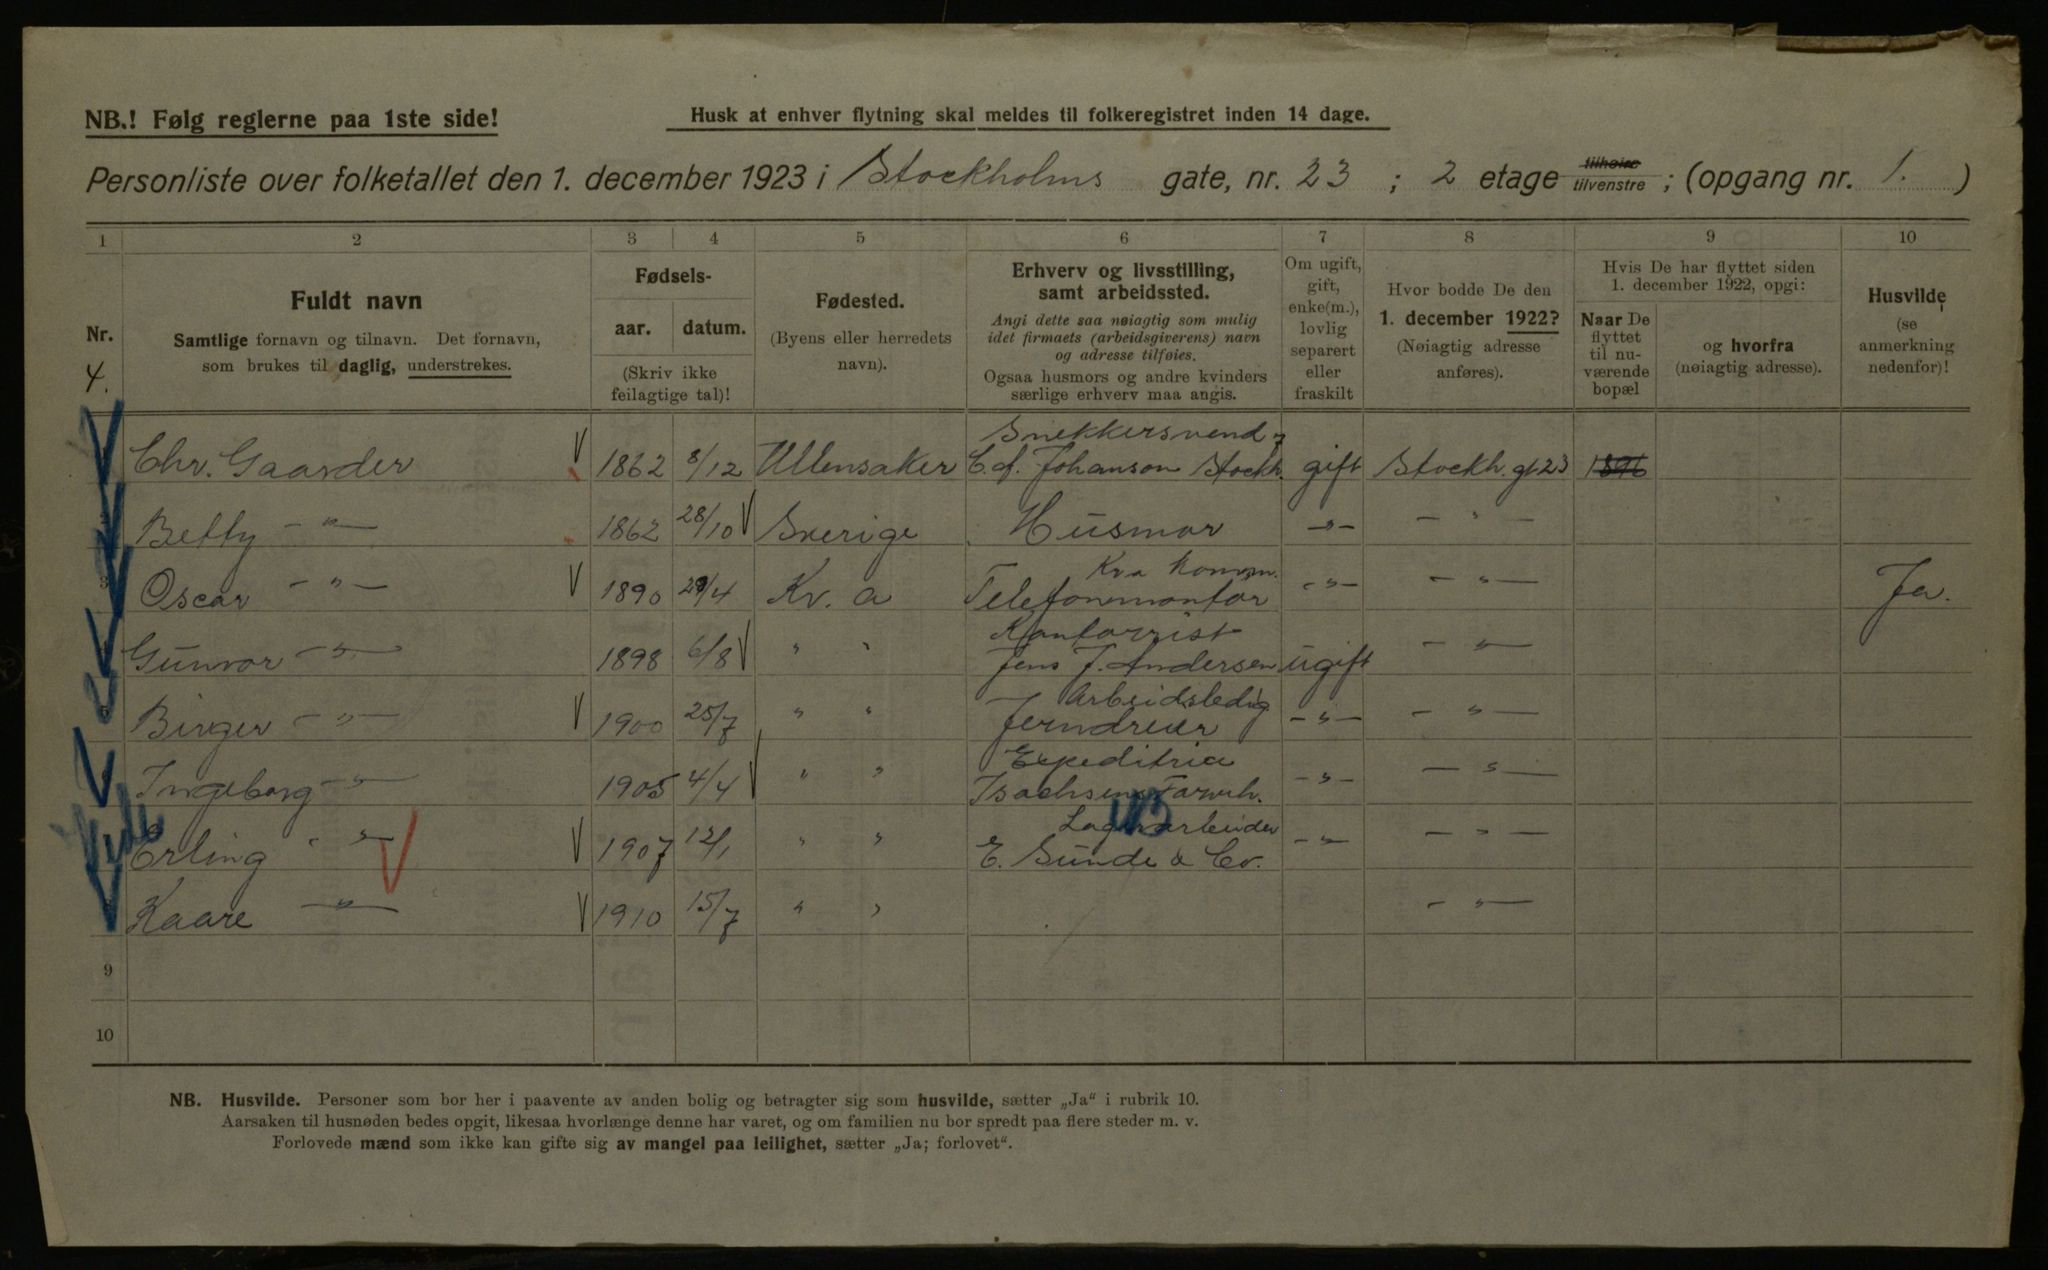 NB.! Følg reglerne paa 1ste side!
Husk at enhver flytning skal meldes til folkeregistret inden 14 dage.
Personliste over folketallet den 1. december 1923 i Stockholms gate, nr. 23 ; 2 etage tilhøire tilvenstre ; (opgang nr. 1. )
1 2 3 4 5 6 7 8 9 10
Nr. 4.
Fuldt navn
Samtlige fornavn og tilnavn. Det fornavn,
som brukes til daglig, understrekes.
Fødsels-
aar. datum.
(Skriv ikke
feilagtige tal)!
Fødested.
(Byens eller herredets
navn).
Erhverv og livsstilling,
samt arbeidssted.
Angi dette saa nøiagtig som mulig
idet firmaets (arbeidsgiverens) navn
og adresse tilføies.
Ogsaa husmors og andre kvinders
særlige erhverv maa angis.
Om ugift,
gift,
enke(m.),
lovlig
separert
eller
fraskilt
Hvor bodde De den
1. december 1922?
(Nøiagtig adresse
anføres).
Hvis De har flyttet siden
1. december 1922, opgi:
Naar De
flyttet
til nu-
værende
bopæl
og hvorfra
(nøiagtig adresse).
Husvilde
(se
anmerkning
nedenfor)!
Snekkersvend
Chr. Gaarder 1862 8/12 Ullensaker C. A. Johanson Stockh. gift Stockh. gt 23 1896
Betty – " – 1862 28/10 Sverige Husmor – " – – " –
Kr.a Komm.
Oscar – " – 1890 29/4 Kr. a Telefonmontør – " – – " – Ja.
Kontorist
Gunvor – " – 1898 6/8 " " Jens J. Andersen ugift – " –
Arbeidsledig
Birger – " – 1900 25/7 " " Jerndreier – " – – " –
Expeditrice
Ingeborg – " – 1905 4/4 " " Isachsens Farveh. – " – – " –
Lagerarbeider
Erling – " – 1907 12/1 " " E. Sunde & Co. – " – – " –
Kaare – " – 1910 15/7 " " – " –
9
10
NB. Husvilde. Personer som bor her i paavente av anden bolig og betragter sig som husvilde, sætter „Ja" i rubrik 10.
Aarsaken til husnøden bedes opgit, likesaa hvorlænge denne har varet, og om familien nu bor spredt paa flere steder m. v.
Forlovede mænd som ikke kan gifte sig av mangel paa leilighet, sætter „Ja; forlovet".